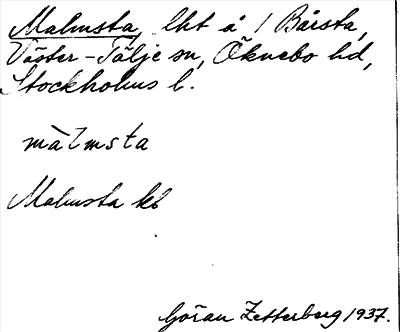 Malmsta, lht å 1 Bårsta,
Väster-Tälje sn, Öknebo hd,
Stockholms l.
màlmsta
Malmsta kb
Göran Zetterberg 1937.